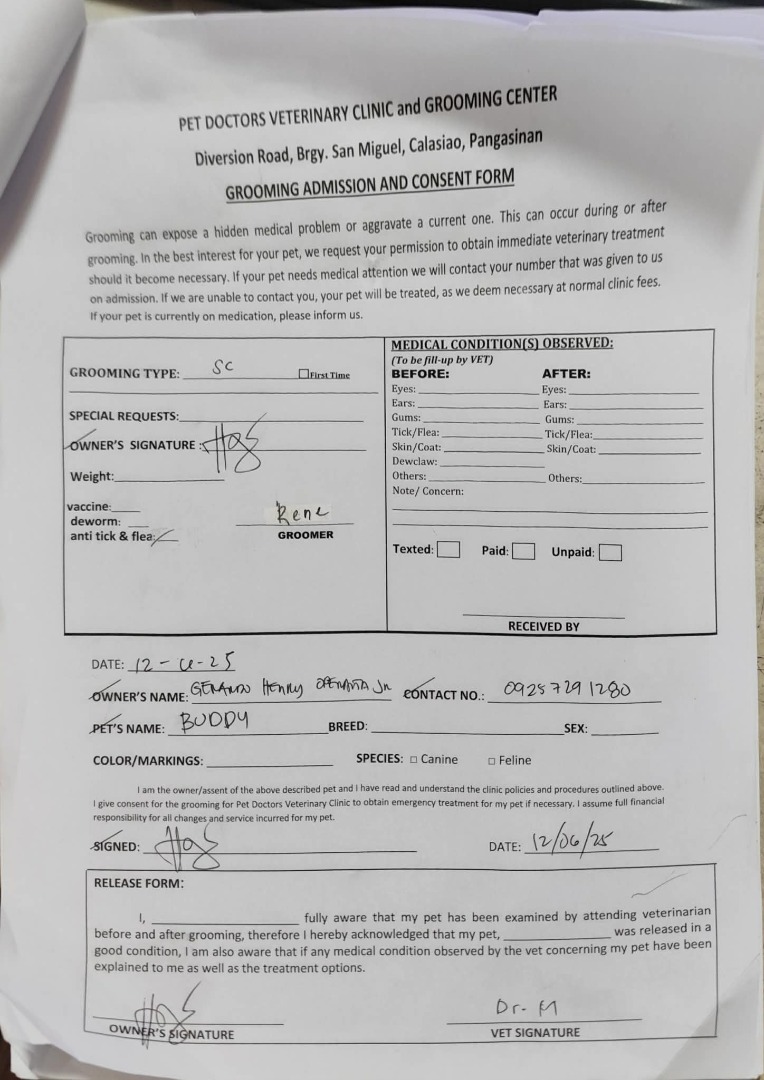 PET DOCTORS VETERINARY CLINIC and GROOMING CENTER
Diversion Road, Brgy. San Miguel, Calasiao, Pangasinan
GROOMING ADMISSION AND CONSENT FORM
Grooming can expose a hidden medical problem or aggravate a current one. This can occur during or after
grooming. In the best interest for your pet, we request your permission to obtain immediate veterinary treatment
should it become necessary. If your pet needs medical attention we will contact your number that was given to us
on admission. If we are unable to contact you, your pet will be treated, as we deem necessary at normal clinic fees.
If your pet is currently on medication, please inform us.
GROOMING TYPE: SC ☐ First Time
SPECIAL REQUESTS:
OWNER'S SIGNATURE :
Weight:
vaccine:
deworm:
anti tick & flea:
Rene
GROOMER
MEDICAL CONDITION(S) OBSERVED:
(To be fill-up by VET)
BEFORE: AFTER:
Eyes: Eyes:
Ears: Ears:
Gums: Gums:
Tick/Flea: Tick/Flea:
Skin/Coat: Skin/Coat:
Dewclaw:
Others: Others:
Note/ Concern:
Texted: ☐ Paid: ☐ Unpaid: ☐
RECEIVED BY
DATE: 12 - 6 - 25
OWNER'S NAME: HENRY JR CONTACT NO.: 0925 729 1280
PET'S NAME: BUDDY BREED: SEX:
COLOR/MARKINGS: SPECIES: ☐ Canine ☐ Feline
I am the owner/assent of the above described pet and I have read and understand the clinic policies and procedures outlined above.
I give consent for the grooming for Pet Doctors Veterinary Clinic to obtain emergency treatment for my pet if necessary. I assume full financial
responsibility for all changes and service incurred for my pet.
SIGNED: DATE: 12/06/25
RELEASE FORM:
I, fully aware that my pet has been examined by attending veterinarian
before and after grooming, therefore I hereby acknowledged that my pet, was released in a
good condition, I am also aware that if any medical condition observed by the vet concerning my pet have been
explained to me as well as the treatment options.
Dr. M
OWNER'S SIGNATURE VET SIGNATURE